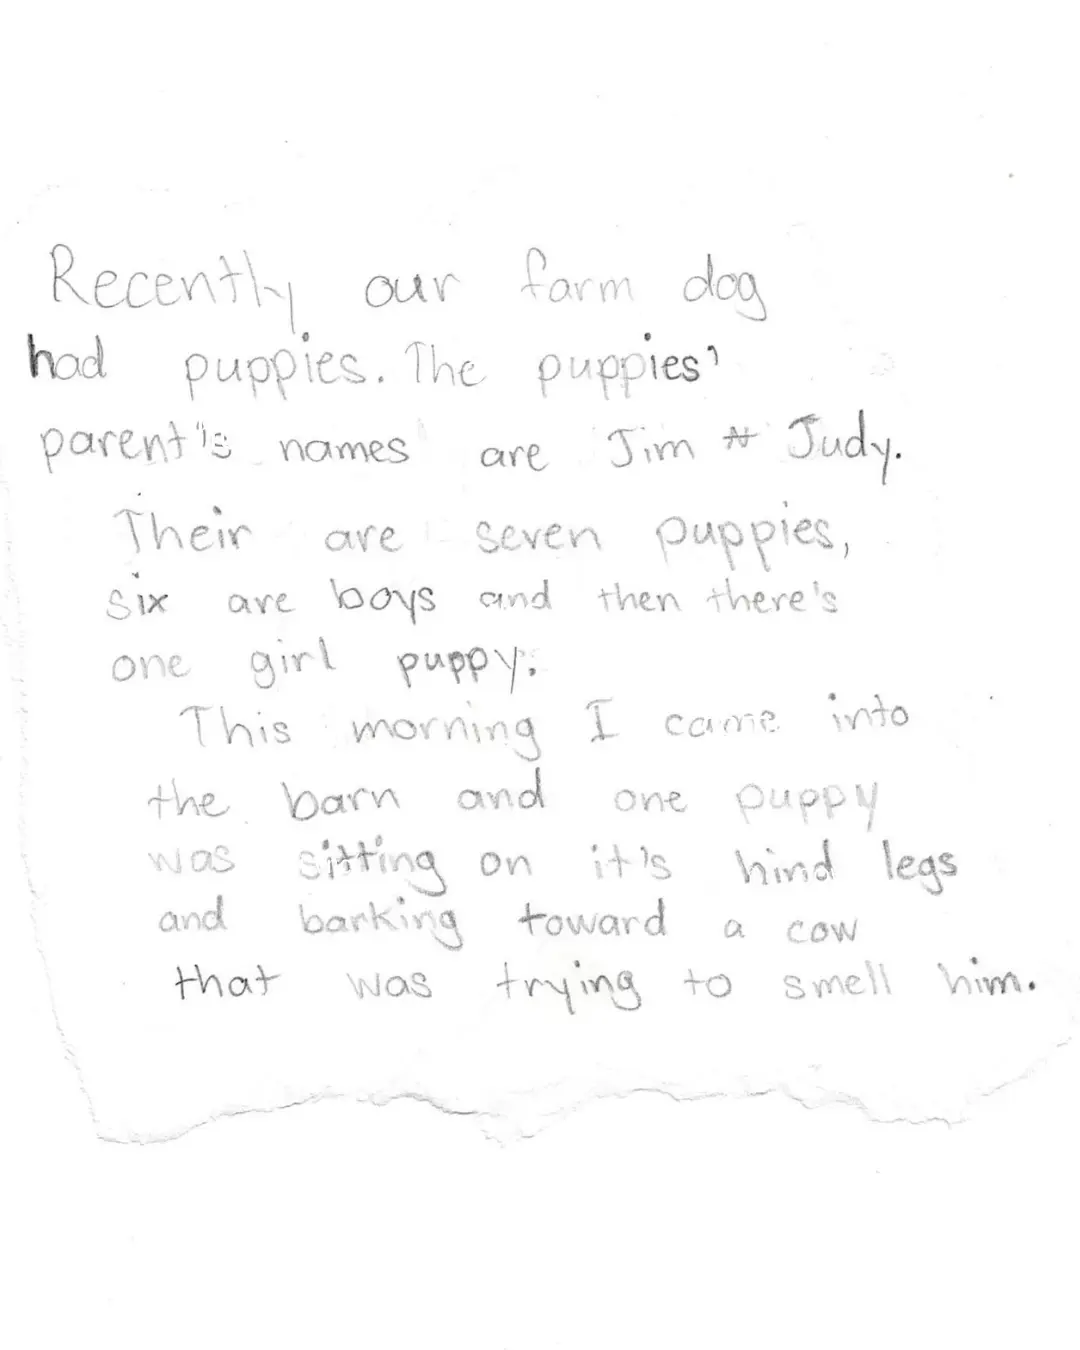 Recently our farm dog
had puppies. The puppies'
parent's names are Jim & Judy.
Their are seven puppies,
six are boys and then there's
one girl puppy.
This morning I came into
the barn and one puppy
was sitting on it's hind legs
and barking toward a cow
that was trying to smell him.